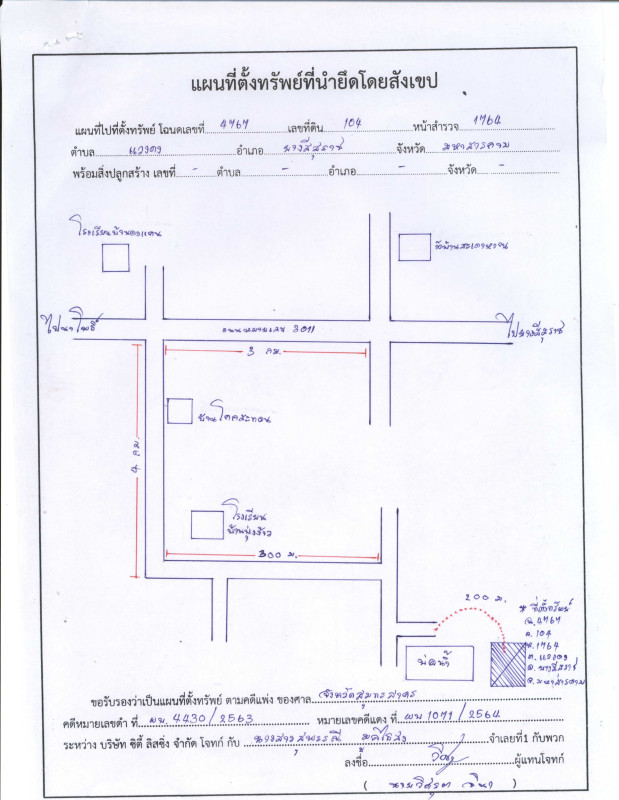 แผนที่ตั้งทรัพย์ที่นำยึดโดยสังเขป
แผนที่ไปที่ตั้งทรัพย์ โฉนดเลขที่ 4767 เลขที่ดิน 104 หน้าสำรวจ 1764
ตำบล แวงดง อำเภอ ยางสีสุราช จังหวัด มหาสารคาม
พร้อมสิ่งปลูกสร้าง เลขที่ - ตำบล - อำเภอ - จังหวัด -
โรงเรียนบ้านดงแคน
ไปนาโพธิ์
ถนนหมายเลข 3011
ไปยางสีสุราช
3 กม.
4 กม.
บ้านโคกสะทอน
โรงเรียน
300 ม.
200 ม.
* ที่ตั้งทรัพย์
ฉ.4767
ล.104
ส.1764
ต.แวงดง
อ.ยางสีสุราช
จ.มหาสารคาม
บ่อน้ำ
ขอรับรองว่าเป็นแผนที่ตั้งทรัพย์ ตามคดีแพ่ง ของศาล จังหวัดสมุทรสาคร
คดีหมายเลขดำ ที่ ผบ. 4430 / 2563 หมายเลขคดีแดง ที่ ผบ 1071 / 2564
ระหว่าง บริษัท ซิตี้ ลิสซิ่ง จำกัด โจทก์ กับ นางสาวสุพรรณี จำเลยที่1 กับพวก
ลงชื่อ ผู้แทนโจทก์